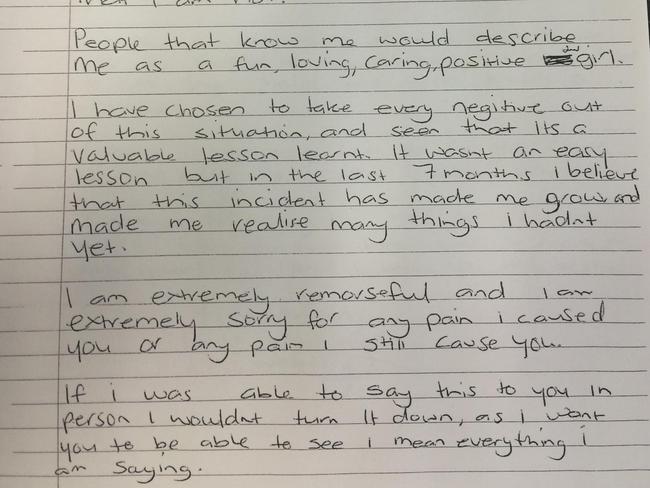 People that know me would describe
me as a fun, loving, caring, positive girl.
I have chosen to take every negitive out
of this situation, and seen that its a
valuable lesson learnt. It wasnt an easy
lesson but in the last 7 months i believe
that this incident has made me grow and
made me realise many things i hadnt
yet.
I am extremely remorseful and I am
extremely sorry for any pain i caused
you or any pain I still cause you.
If i was able to say this to you in
person I wouldnt turn it down, as i want
you to be able to see I mean everything i
am saying.